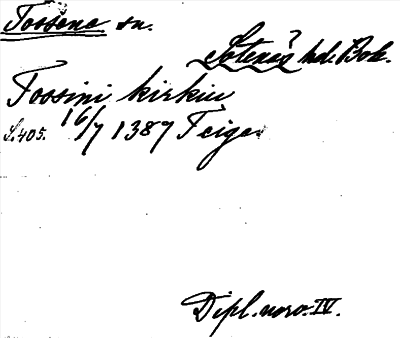 Tossene sn.
Sotenäs hd. Boh.
?
Fossini kirkiu
S. 405. 16/7 1389 Feiga
Dipl. norv. IV.